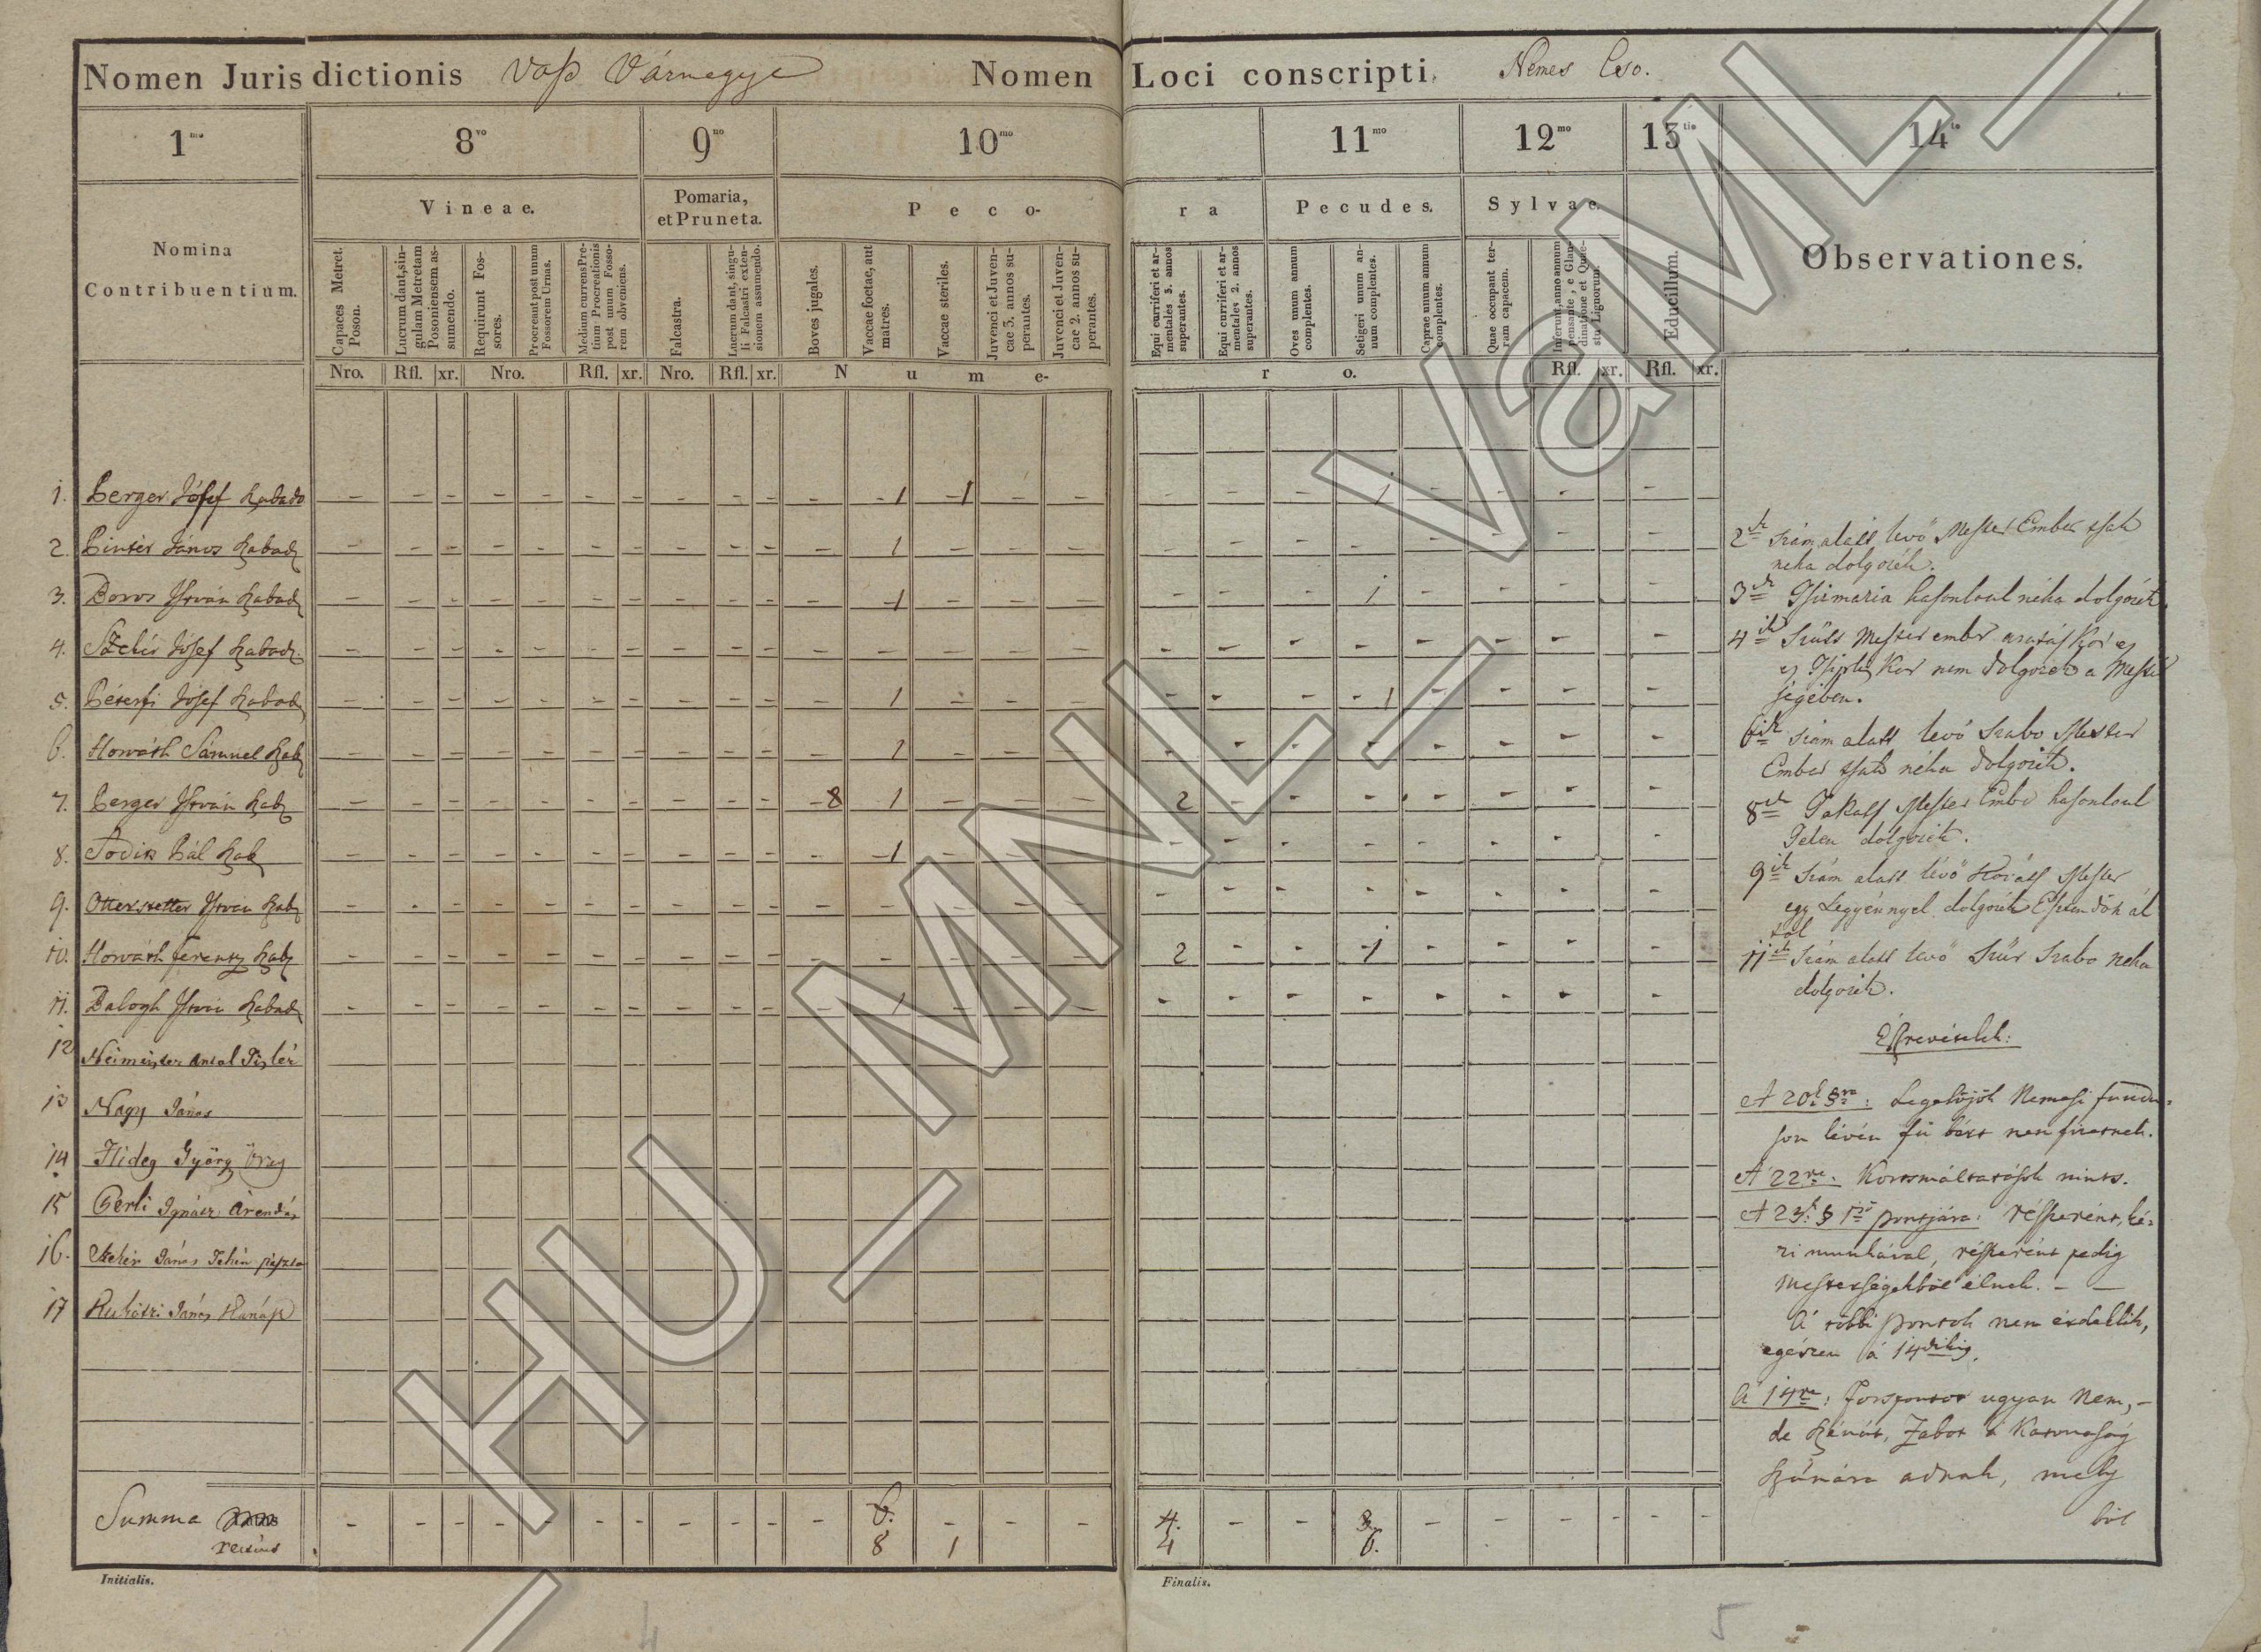 Nomen Jurisdictionis Vaſs Vármegye Nomen Loci conscripti. Nemes Cso.
1mo 8vo 9no 10mo 11mo 12mo 13tio 14to
Nomina Contribuentium.
Vineae.
Pomaria, et Pruneta.
Peco-
ra
Pecudes.
Sylvae.
Observationes.
Capaces Metret. Poson.
Lucrum dant, singulam Metretam Posoniensem assumendo.
Requirunt Fossores.
Procreant post unum Fossorem Urnas.
Medium currens Pretium Procreationis post unum Fossorem obveniens.
Falcastra.
Lucrum dant, singuli Falcastri extensionem assumendo.
Boves jugales.
Vaccae foetae, aut matres.
Vaccae steriles.
Juvenci et Juvencae 3. annos superantes.
Juvenci et Juvencae 2. annos superantes.
Equi curriferi et armentales 3. annos superantes.
Equi curriferi et armentales 2. annos superantes.
Oves unum annum complentes.
Setigeri unum annum complentes.
Caprae unum annum complentes.
Quae occupant terram capacem.
Inferunt, anno annum pensante, e Glandinatione et Quaestu Lignorum.
Educillum.
Nro. Rfl. xr. Nro. Rfl. xr. Nro. Rfl. xr. Nume-
ro. Rfl. xr. Rfl. xr.
1. Berger Jósef - - - - - - - - - - - 1 1 - - - - - 1 - - - -
2. Pintér János - - - - - - - - - - - 1 - - - - - - - - - - -
3. Boros István - - - - - - - - - - - 1 - - - - - - 1 - - - -
4. Jósef - - - - - - - - - - - - - - - - - - - - - - -
5. Péterfi Jósef - - - - - - - - - - - 1 - - - - - - 1 - - - -
6. Horváth Sámuel - - - - - - - - - - - 1 - - - - - - - - - - -
7. Berger István - - - - - - - - - - 8 1 - - - 2 - - - - - - -
8. Pál - - - - - - - - - - - 1 - - - - - - - - - - -
9. István - - - - - - - - - - - - - - - - - - - - - - -
10. Horváth Ferentz - - - - - - - - - - - - - - - 2 - - 1 - - - -
11. Balogh István - - - - - - - - - - - 1 - - - - - - - - - - -
12 Antal
13 Nagy János
14 Hideg György Öreg
15 Gerli Ignátz Árendás
16. János Tehén pásztor
17 János Kanász
Summa - - - - - - - - - - - 6. - - - 4. - - 3. - - - - - -
8 1 4 6.
2ik szám alatt levő Mester Ember tsak
neha dolgozik.
3ik Tsizmazia hasonloul néha dolgozik
4ik Szüts Mester ember aratáskor es
kor nem dolgozik a Mester
ségében.
6ik szám alatt levő Szabo Mester
Ember tsak néha dolgozik.
8ik Takats Mester Ember hasonloul
Telen dolgozik.
9ik Szám alatt lévő Mester
egy Legyénnyel dolgozik Esztendők ál
tal
11ik Szám alatt levő Szür Szabo neha
dolgozik.
Észrevételek:
A 20k §ra: Legelőjök Nemesi fundu=
son lévén fű bért nem fizetnek.
A 22ra: Kortsmáltatások nints.
A 23k § 1ső pontjára: részszerént ké=
zi munkával, részszerént pedig
mesterségekből élnek. - -
A többi pontok nem érdeklik,
egészen á 14dikig.
A 14re: Forspontot ugyan nem, -
de Szénát, Zabot a Katonaság
Számára adnak, mely
ből
Initialis.
Finalis.
4
5
HU_MNL_VaML_